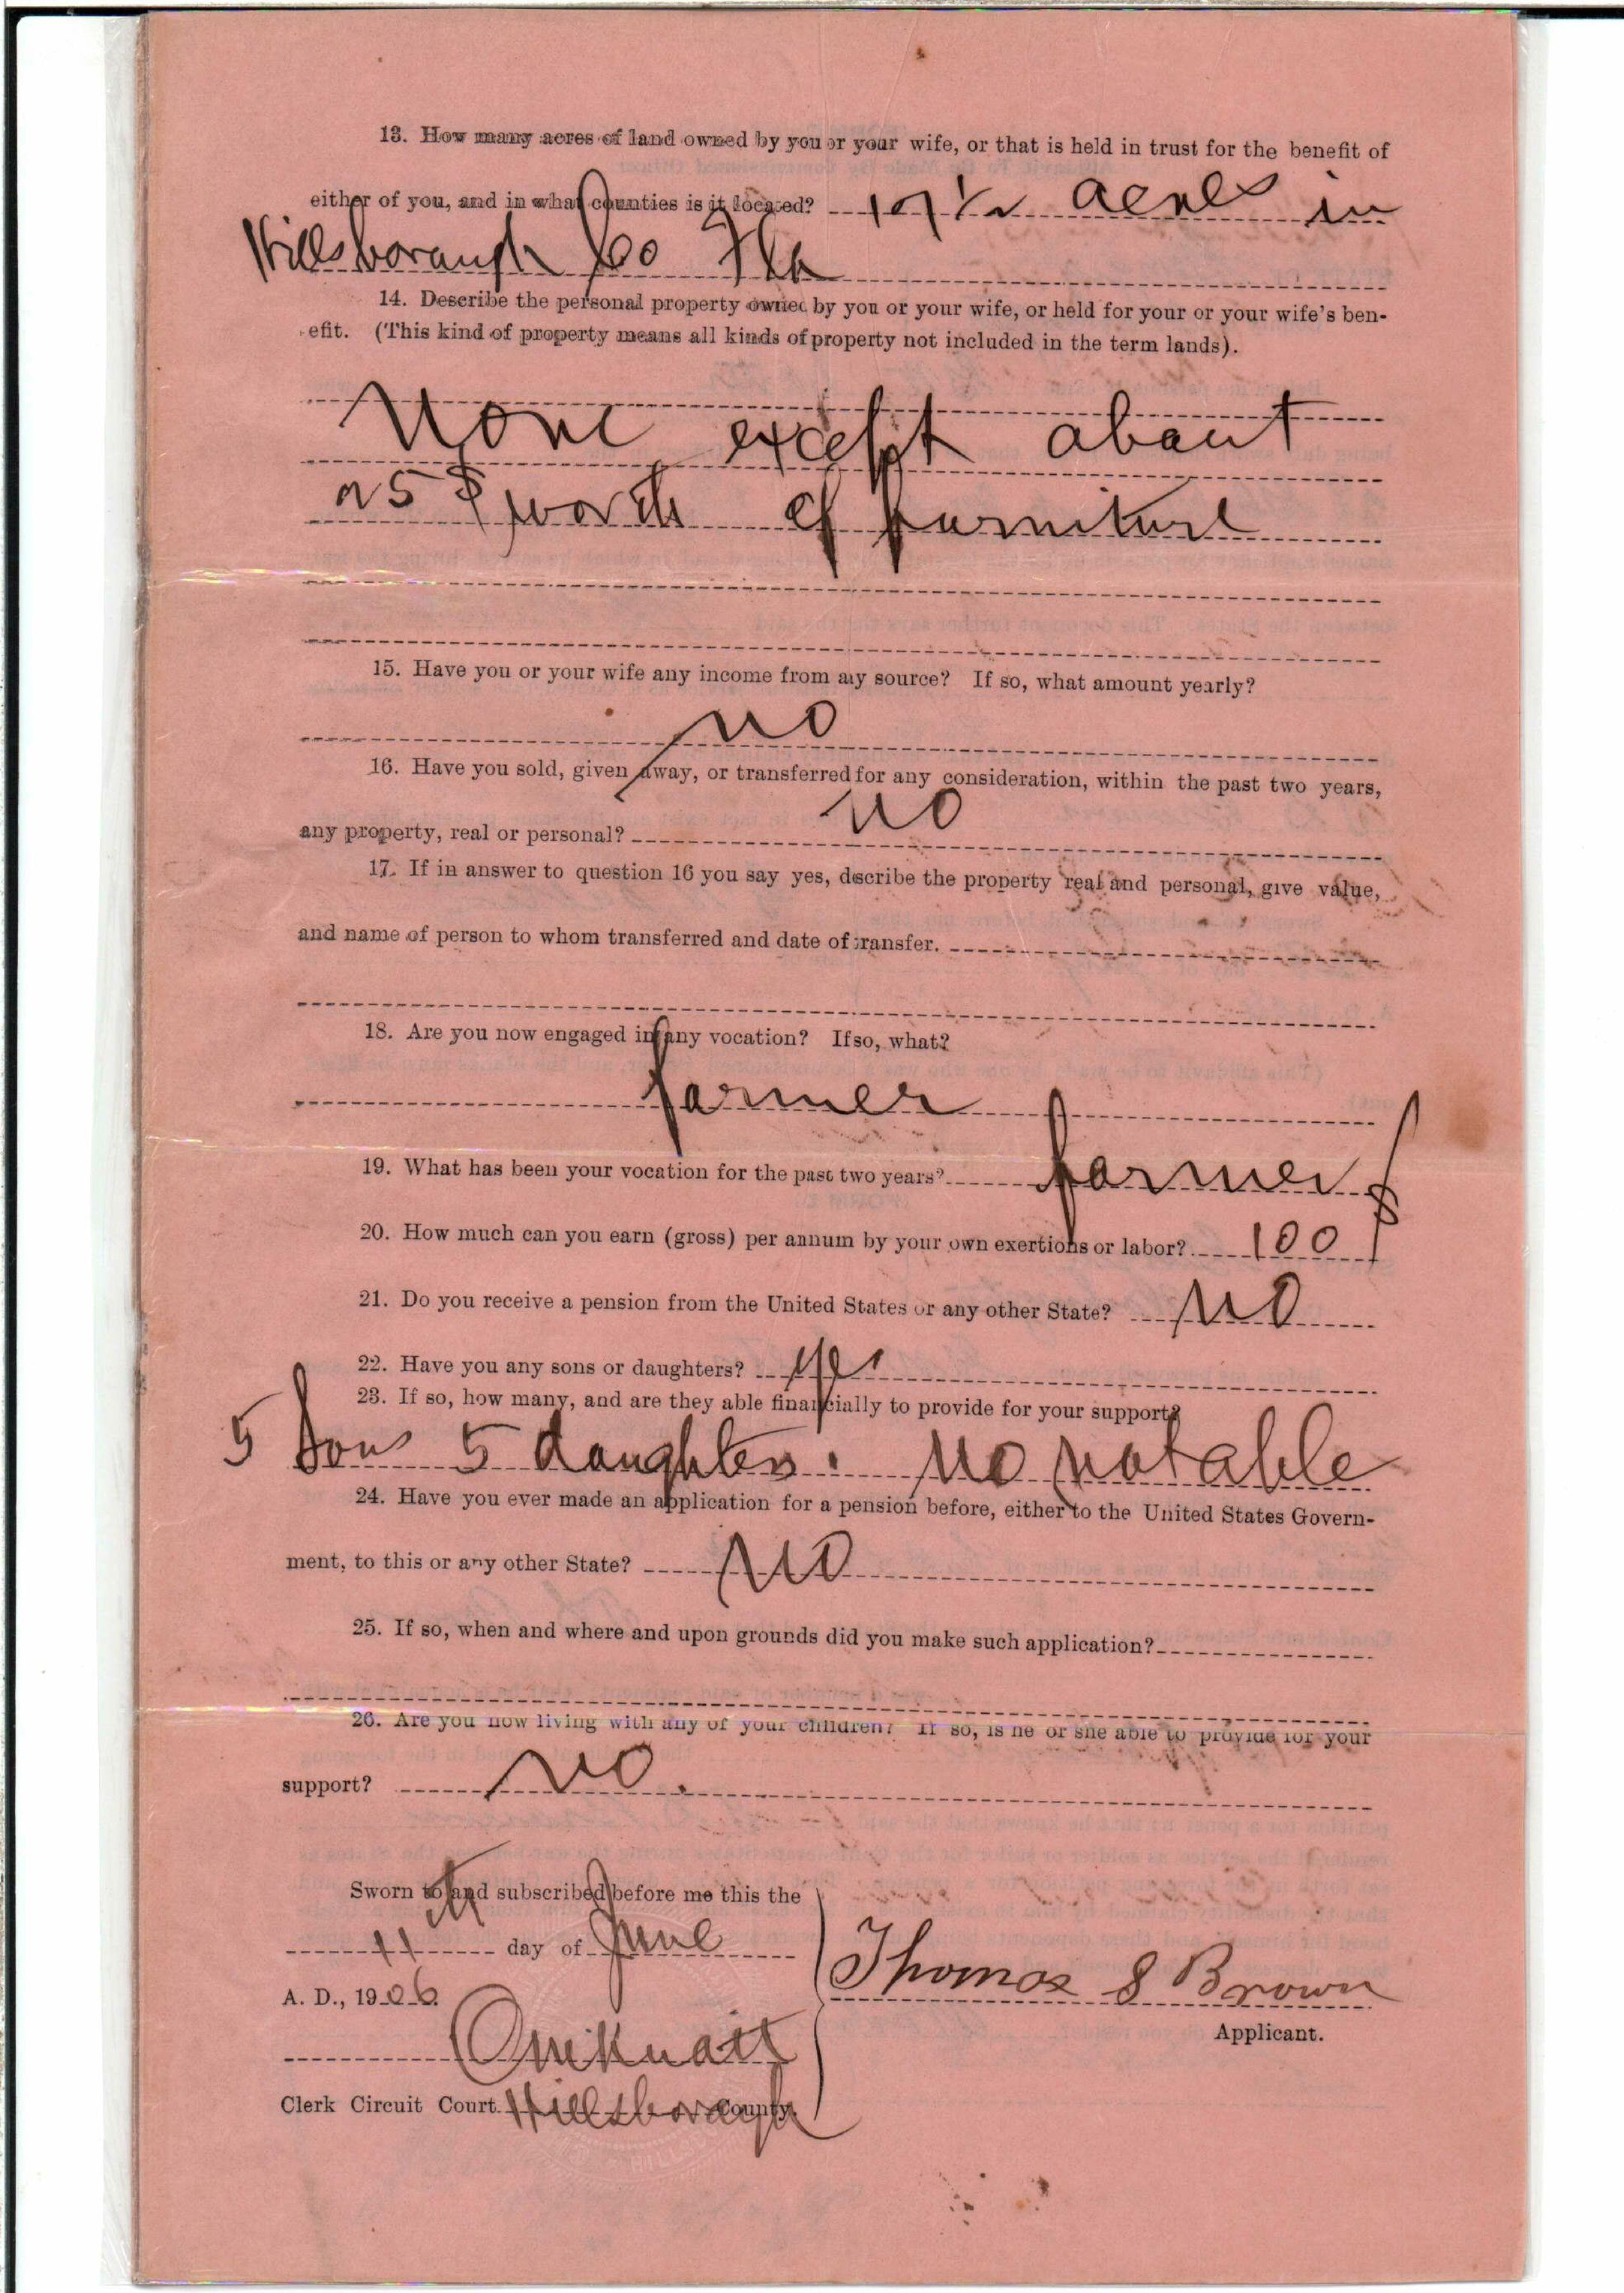 13. How many acres of land owned by you or your wife, or that is held in trust for the benefit of
either of you, and in what counties is it located? 107 1/2 acres in
Hillsborough Co Fla
14. Describe the personal property owned by you or your wife, or held for your or your wife's ben-
efit. (This kind of property means all kinds of property not included in the term lands).
None except about
25 $ worth of furniture
15. Have you or your wife any income from any source? If so, what amount yearly?
no
16. Have you sold, given away, or transferred for any consideration, within the past two years,
any property, real or personal? no
17. If in answer to question 16 you say yes, describe the property real and personal, give value,
and name of person to whom transferred and date of transfer.
18. Are you now engaged in any vocation? If so, what?
farmer
19. What has been your vocation for the past two years? farmer
20. How much can you earn (gross) per annum by your own exertions or labor? 100 $
21. Do you receive a pension from the United States or any other State? no
22. Have you any sons or daughters? yes
23. If so, how many, and are they able financially to provide for your support?
5 sons 5 daughters. no not able
24. Have you ever made an application for a pension before, either to the United States Govern-
ment, to this or any other State? no
25. If so, when and where and upon grounds did you make such application?
26. Are you now living with any of your children? If so, is he or she able to provide for your
support? no.
Sworn to and subscribed before me this the
11th day of June
A. D., 1906.
Thomas S Brown
Applicant.
Clerk Circuit Court Hillsborough County.